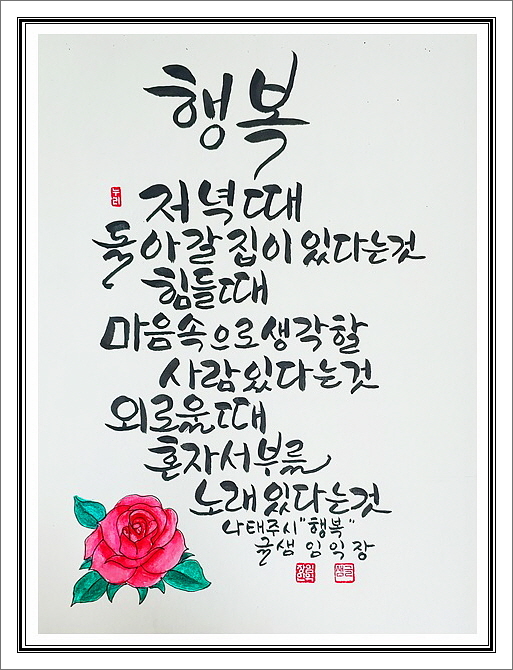 행복
누리
저녁때
돌아갈 집이 있다는것
힘들때
마음속으로 생각할
사람있다는것
외로울때
혼자서부를
노래있다는것
나태주시 "행복"
글샘 임익장